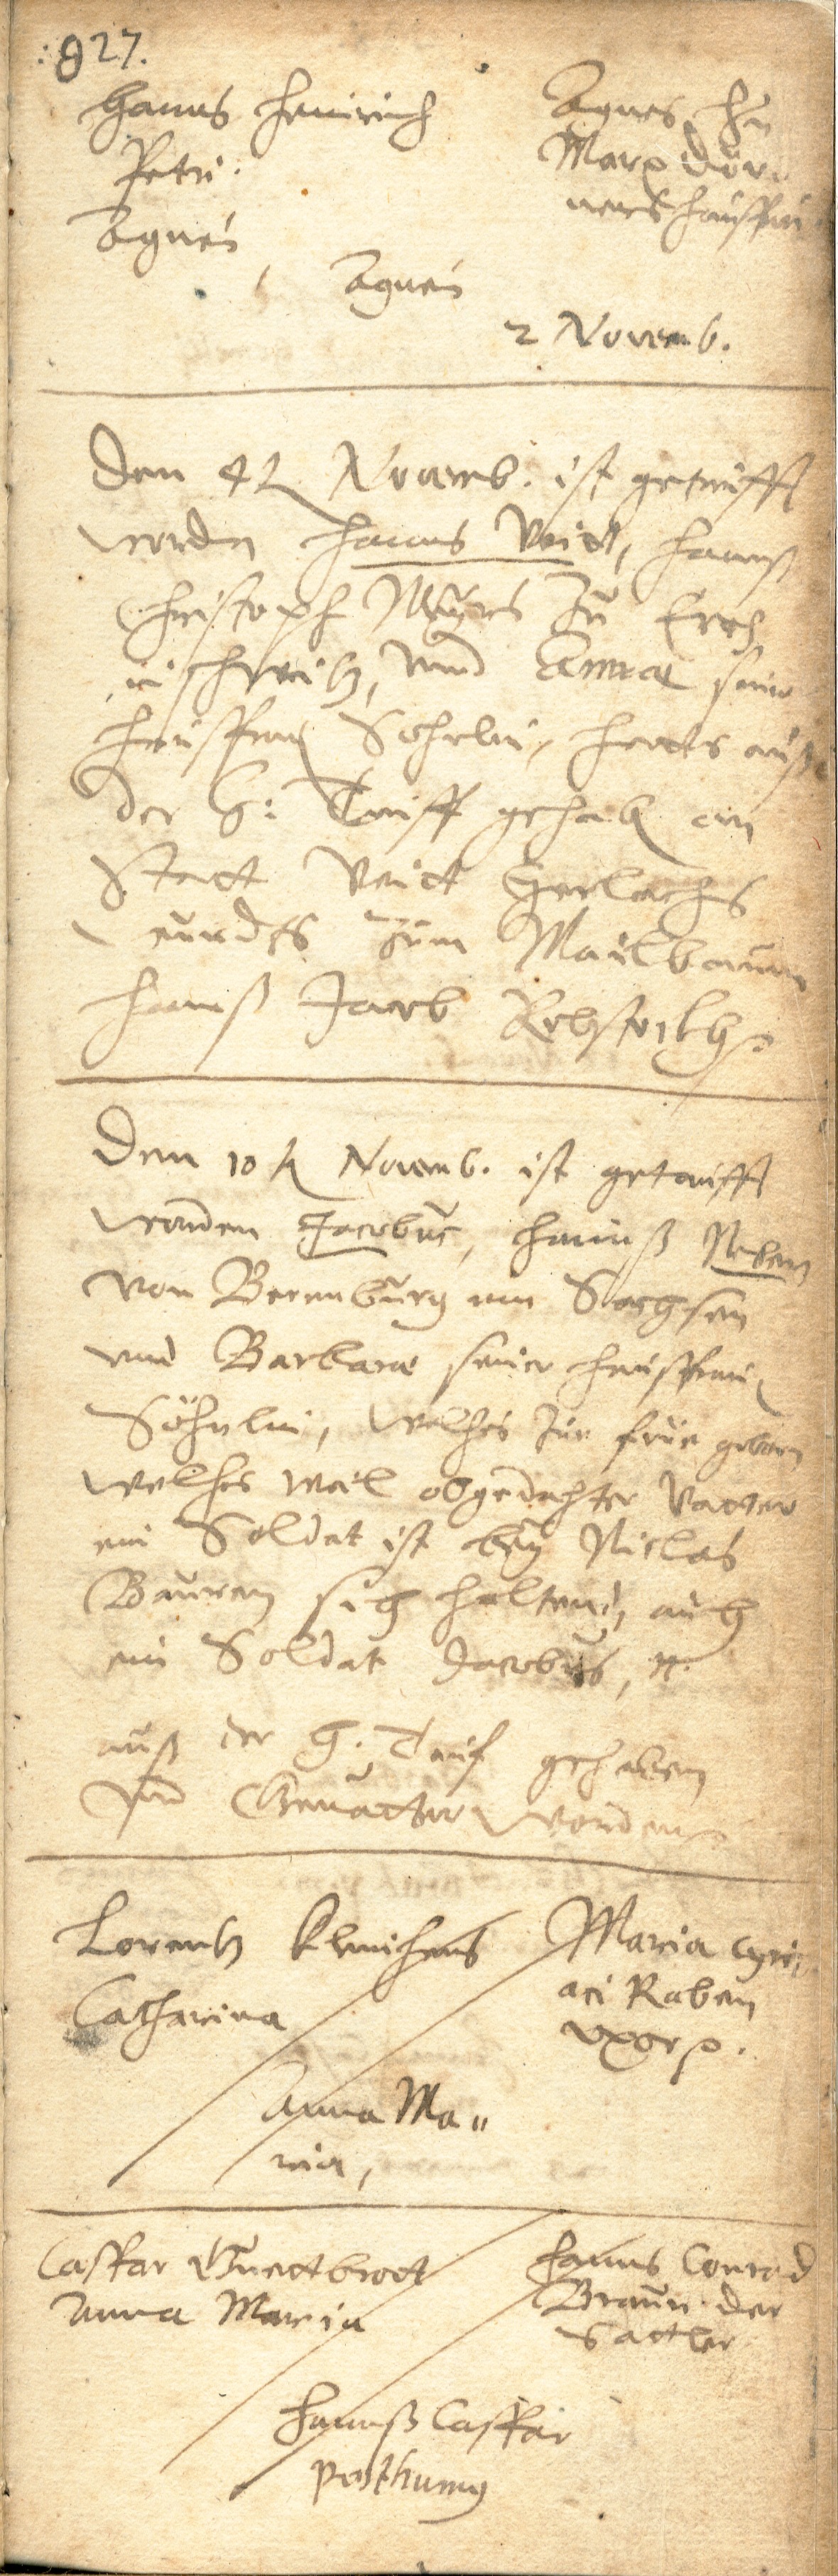 :827.
Hanns Heinrich
Petri.
Agnes
Agnes
Marx Dür
ners haussfrau
Agnes
2 Novemb.
Den 4t Novemb. ist getaufft
worden Hanns Veit, Hannß
Christoph Mayrs Zu
und Anna seiner
haussfraw Söhnlin,
der H: Tauff gehabt an
Statt Veit Gerlachs
Würdts zum Maulbaum
Hanß Jacob
Den 10t Novemb. ist getaufft
worden Jacobus, Hannß
von Berenburg aus Sachsen
und Barbara seiner haussfrau
Söhnlin, welches zue frue geborn
welches weil obgedachter Vatter
ein Soldat ist bey Niclas
Bauren sich haltend, auch
ein Soldat Jacobus, N.
auß der H. Tauf gehaben
und Gevatter worden
Lorentz
Catharina
Maria Cyri,
aci Raben
uxor.
Anna Ma"
ria,
Caspar
Anna Maria
Hanns Conrad
Braun der
Sattler
Hannß Caspar
Posthumus